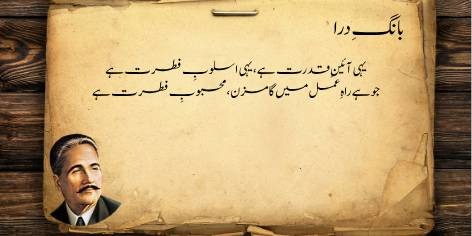 بانگِ درا
یہی آئینِ قدرت ہے، یہی اسلوبِ فطرت ہے
جو ہے راہِ عمل میں گامزن، محبوبِ فطرت ہے